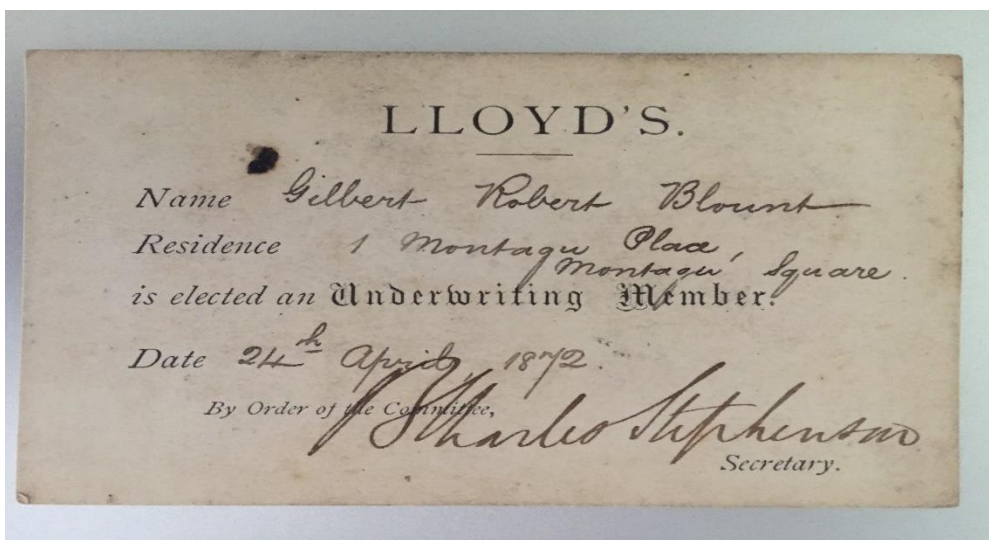 LLOYD'S.
Name Gilbert Robert Blount
Residence 1 Montagu Place,
Montagu Square.
is elected an Underwriting Member.
Date 24th April, 1872.
By Order of the Committee,
Charles Stephenson
Secretary.